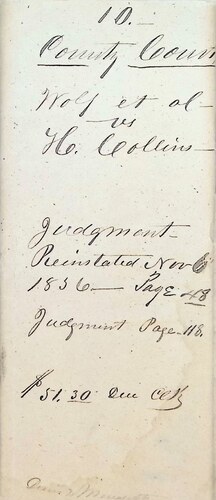 10.
County Cour
Wolf et al
vs
H. Collins
Judgment
Reinstated Nov 6
1836 — Page 48
Judgment Page 118.
$51.30 Due Clk